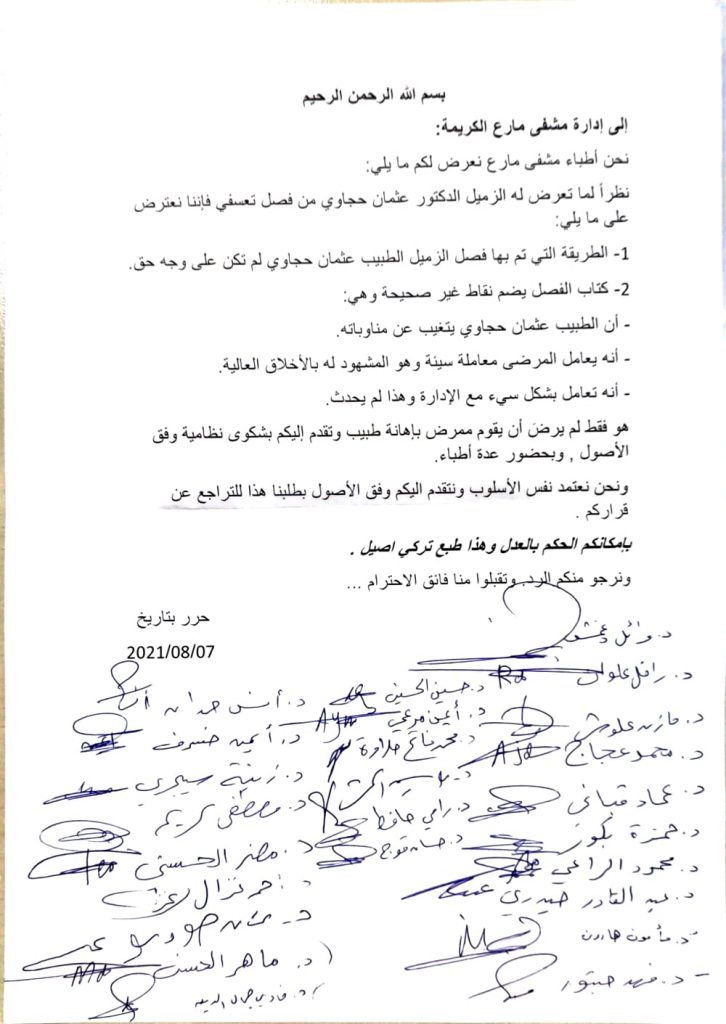 بسم الله الرحمن الرحيم
إلى إدارة مشفى مارع الكريمة:
نحن أطباء مشفى مارع نعرض لكم ما يلي:
نظراً لما تعرض له الزميل الدكتور عثمان حجاوي من فصل تعسفي فإننا نعترض
على ما يلي:
1- الطريقة التي تم بها فصل الزميل الطبيب عثمان حجاوي لم تكن على وجه حق.
2- كتاب الفصل يضم نقاط غير صحيحة وهي:
- أن الطبيب عثمان حجاوي يتغيب عن مناوباته.
- أنه يعامل المرضى معاملة سيئة وهو المشهود له بالأخلاق العالية.
- أنه تعامل بشكل سيء مع الإدارة وهذا لم يحدث.
هو فقط لم يرضَ أن يقوم ممرض بإهانة طبيب وتقدم إليكم بشكوى نظامية وفق
الأصول , وبحضور عدة أطباء.
ونحن نعتمد نفس الأسلوب ونتقدم اليكم وفق الأصول بطلبنا هذا للتراجع عن
قراركم .
بإمكانكم الحكم بالعدل وهذا طبع تركي اصيل .
ونرجو منكم الرد وتقبلوا منا فائق الاحترام ...
حرر بتاريخ
2021/08/07
د. وائل
د. مازن علوش
د. محمد عجاج
د. عماد قباني
د. حمزة
د. محمود الراعي
د. عبد القادر حيدري
د. مأمون هارون
د. فهد
د. حسين الحسين
د. أيمن مرعي
د. محمد
د. رامي حافظ
د. حسان
د. أنس حمدان
د. أيمن
د. زينة سيجري
د. مصطفى كريم
د. مضر الحسن
د.
د. ماهر الحسن
د. فادي جمال